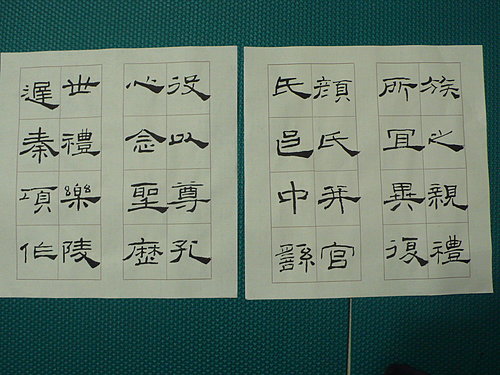 族之親禮
所宜異復
顏氏并官
氏邑中繇
役以尊孔
心念聖歷
世禮樂陵
遲秦項作